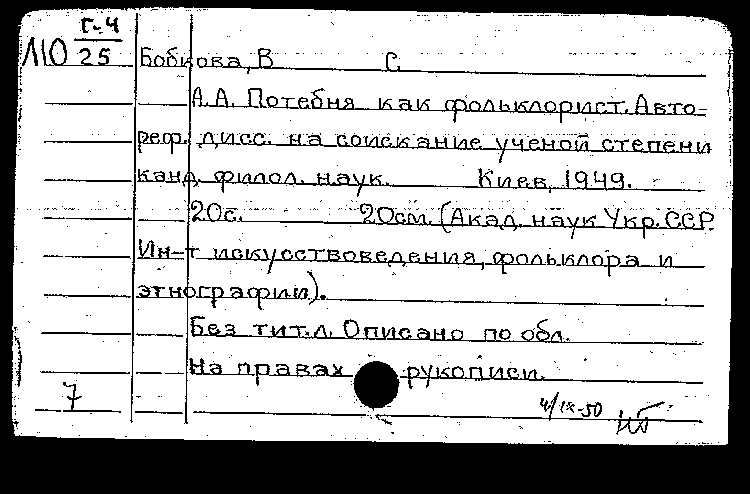 Г-4
110 25 Бобкова, В С.
А.А. Потебня как фольклорист. Авто-
реф. дисс. на соискание ученой степени
канд. филол. наук. Киев, 1949.
20с. 20см. (Акад. наук Укр. ССР.
Ин-т искусствоведения, фольклора и
этнографии).
Без тит.л. Описано по обл.
На правах рукописи.
7
4/IX-50